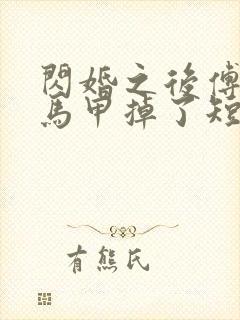 閃婚之後傅
馬甲掉了短
有熊氏